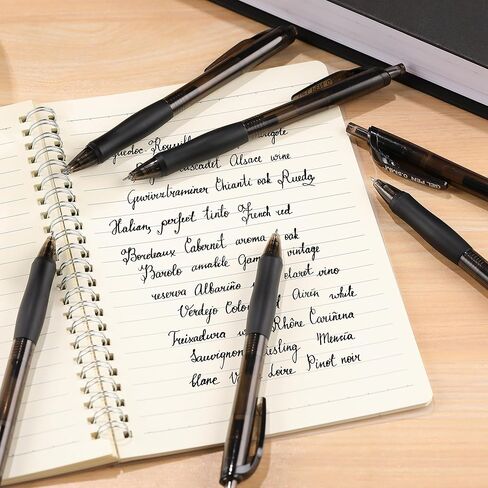 Languedoc-Roussillon
Muscadet Alsace wine
Gewürztraminer Chianti oak Rueda
Italian, perfect tinto French red
Bordeaux Cabernet aroma oak
Barolo amabile vintage
reserva Albariño claret vino
Verdejo Airén white
Treixadura Rhône Cariñena
Sauvignon Riesling Mencía
blanc Loire Pinot noir